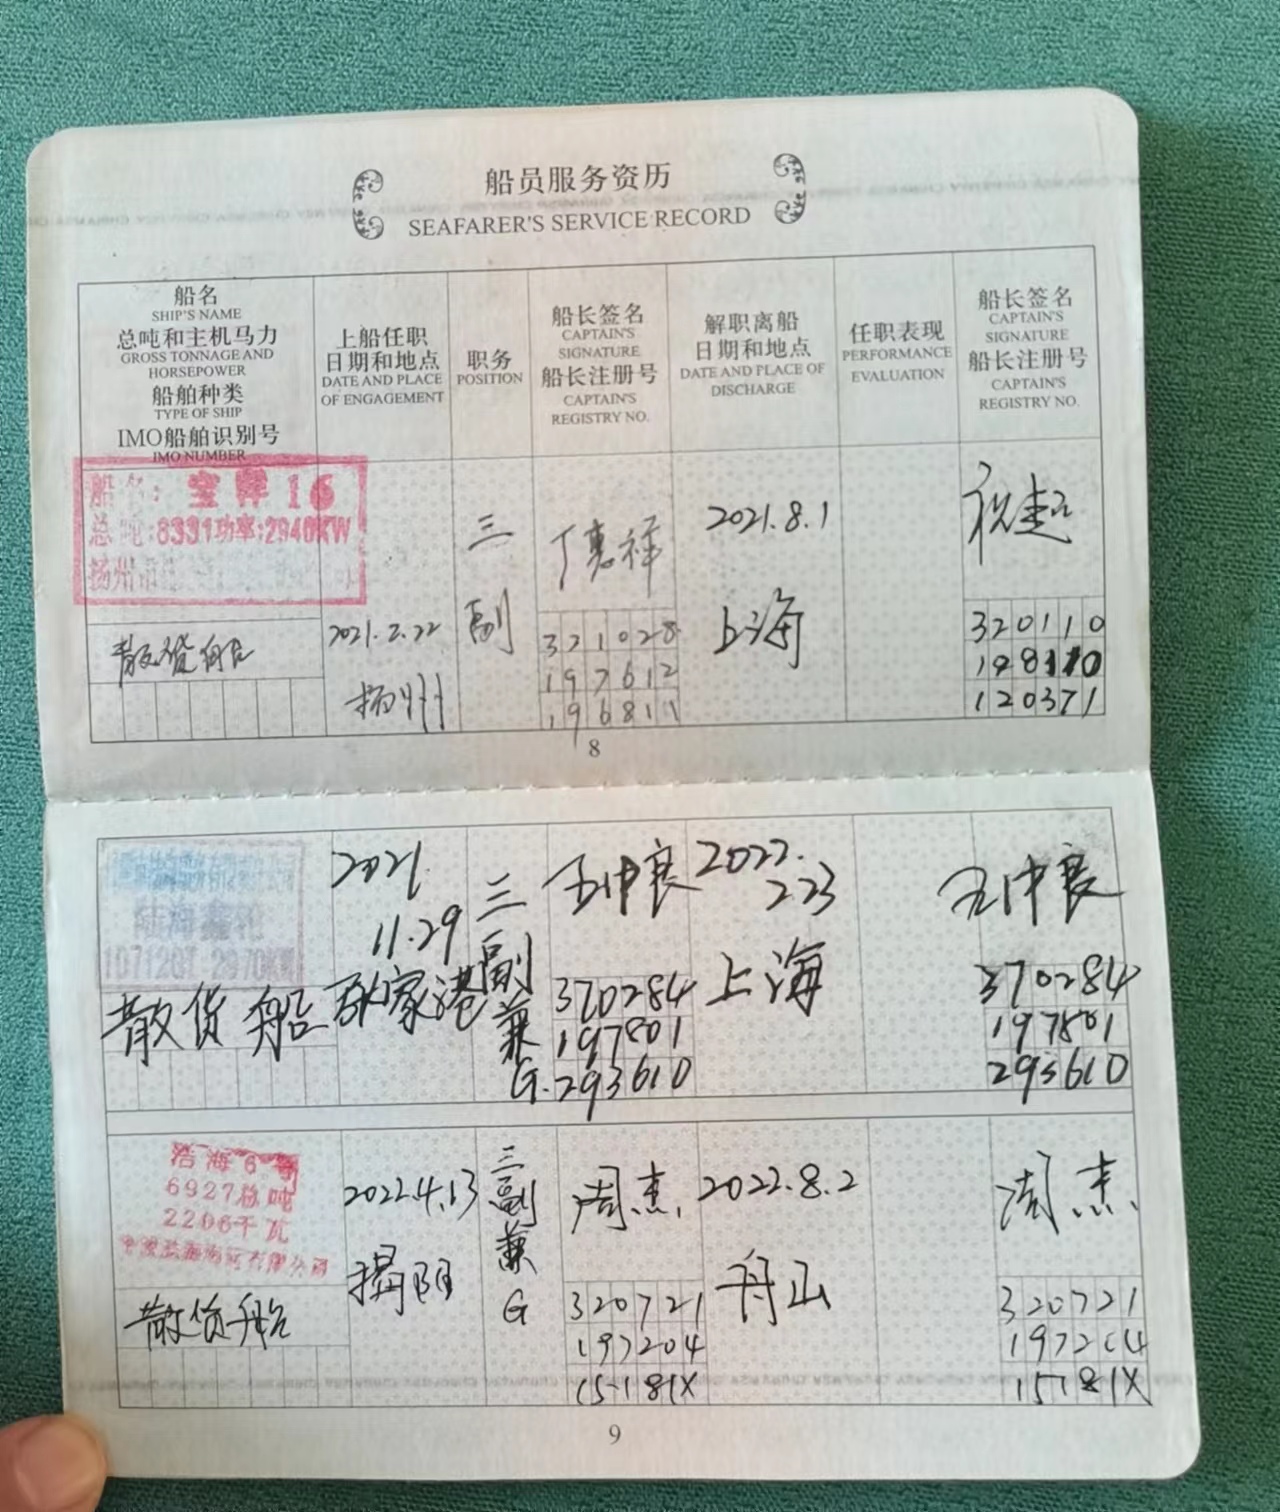 船员服务资历
SEAFARER'S SERVICE RECORD
船名
SHIP'S NAME
总吨和主机马力
GROSS TONNAGE AND
HORSEPOWER
船舶种类
TYPE OF SHIP
IMO船舶识别号
IMO NUMBER
上船任职
日期和地点
DATE AND PLACE
OF ENGAGEMENT
职务
POSITION
船长签名
CAPTAIN'S
SIGNATURE
船长注册号
CAPTAIN'S
REGISTRY NO.
解职离船
日期和地点
DATE AND PLACE OF
DISCHARGE
任职表现
PERFORMANCE
EVALUATION
船长签名
CAPTAIN'S
SIGNATURE
船长注册号
CAPTAIN'S
REGISTRY NO.
船名: 16
总吨:8331功率:2940KW
扬州市
散货船
2021.2.22
扬州
三
副
丁惠祥
321028
197612
196811
2021.8.1
上海
祝超
320110
120371
8
陆海鑫轮
散货船
2021.
11.29
张家港
三
副
兼
G.
370284
197801
293610
2022.
2.23
上海
370284
197801
293610
浩海6
6927总吨
2206千瓦
散货船
2022.4.13
揭阳
三
副
兼
G
周杰
320721
197204
15181X
2022.8.2
舟山
周杰
320721
197204
15181X
9